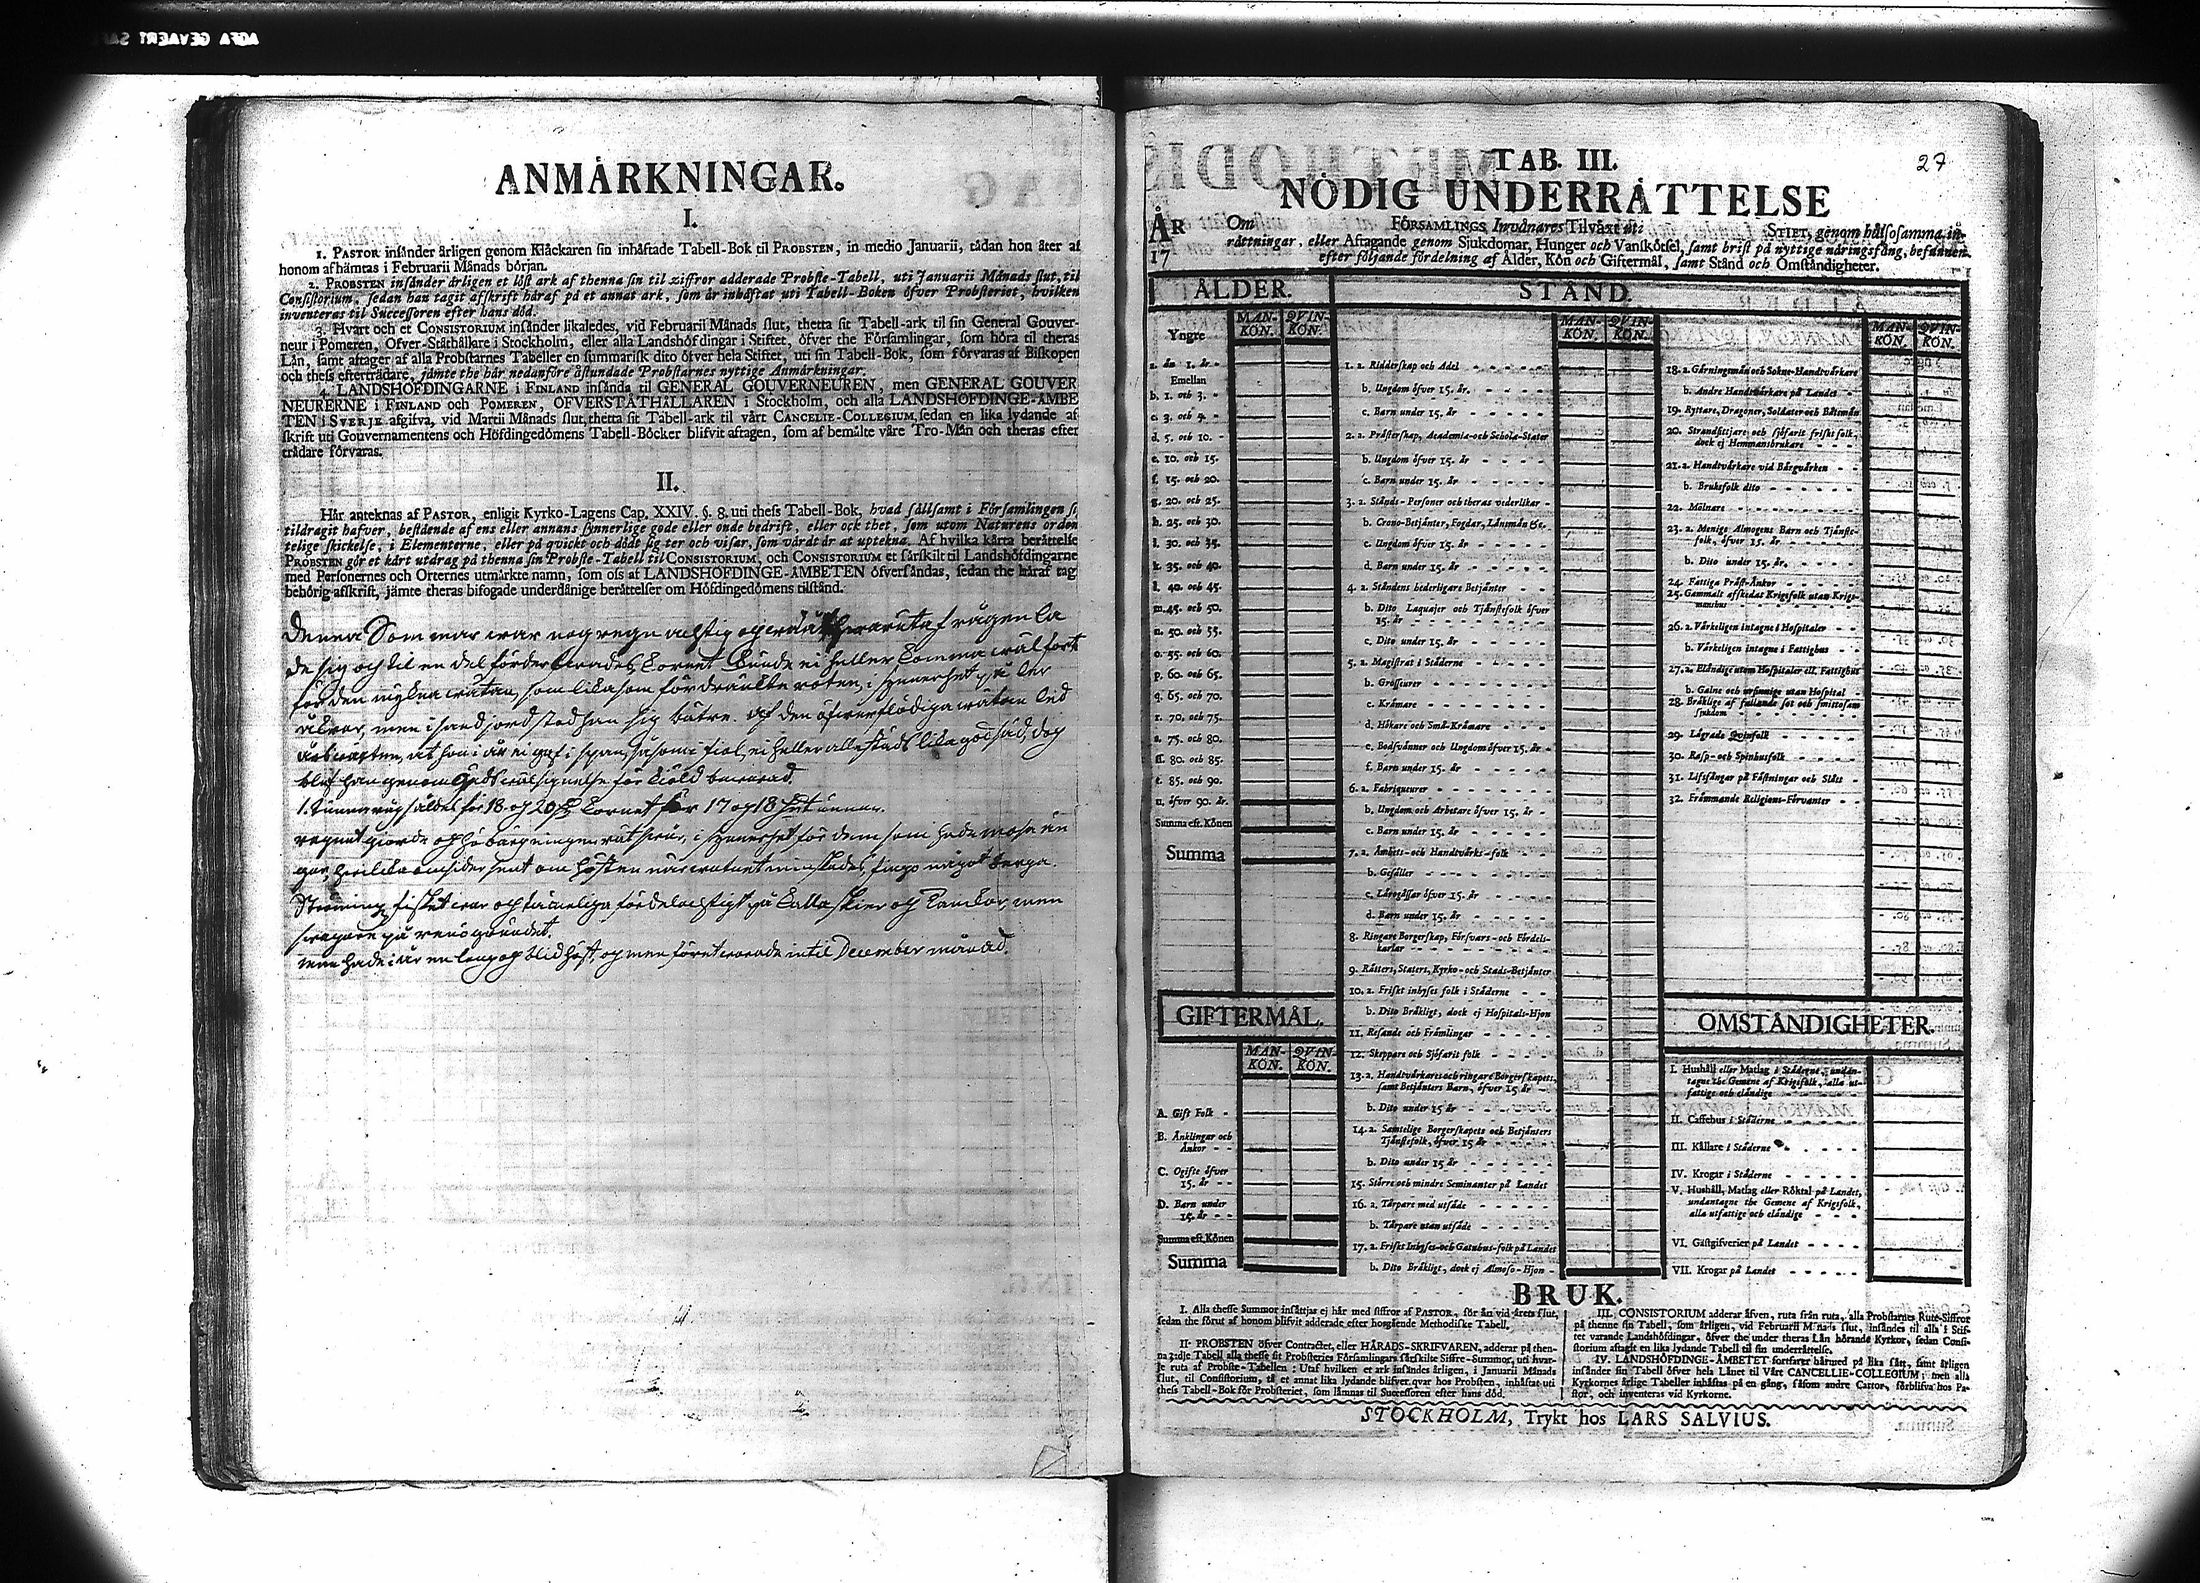 ANMÄRKNINGAR.
I.
1. PASTOR insänder årligen genom Klåckaren sin inhäftade Tabell-Bok til PROBSTEN, in medio Januarii, tådan hon åter af
honom afhämtas i Februarii Månads början.
2. PROBSTEN insänder årligen et löst ark af thenna sin til ziffror adderade Probste-Tabell, uti Januarii Månads slut, til
Consistorium, sedan han tagit afskrift häraf på et annat ark, som är inhäftat uti Tabell-Boken öfver Probsteriet, hvilken
inventeras til Successoren efter hans död.
3. Hvart och et CONSISTORIUM insänder likaledes, vid Februarii Månads slut, thetta sit Tabell-ark til sin General Gouver-
neur i Pomeren, Ofver-Ståthållare i Stockholm, eller alla Landshöfdingar i Stiftet, öfver the Församlingar, som höra til theras
Län, samt aftager af alla Probstarnes Tabeller en summarisk dito öfver hela Stiftet, uti sin Tabell-Bok, som förvaras af Biskopen
och thess efterträdare, jämte the här nedanföre åstundade Probstarnes nyttige Anmärkningar.
4. LANDSHÖFDINGARNE i FINLAND insända til GENERAL GOUVERNEUREN, men GENERAL GOUVER
NEURERNE i FINLAND och POMEREN, ÖFVERSTÅTHÅLLAREN i Stockholm, och alla LANDSHÖFDINGE-ÄMBE
TEN i SVERJE afgifva, vid Martii Månads slut, thetta sit Tabell-ark til vårt CANCELIE-COLLEGIUM, sedan en lika lydande af
skrift uti Gouvernamentens och Höfdingedömens Tabell-Böcker blifvit aftagen, som af bemälte våre Tro-Män och theras efter
trädare förvaras.
II.
Här anteknas af PASTOR, enligit Kyrko-Lagens Cap. XXIV. §. 8. uti thess Tabell-Bok, hvad sällsamt i Församlingen si
tildragit hafver, bestående af ens eller annans synnerlige gode eller onde bedrift, eller ock thet, som utom Naturens orden
telige skickelse, i Elementerne, eller på qvickt och dödt sig ter och visar, som värdt är at uptekna. Af hvilka kårta berättelse
PROBSTEN gör et kårt utdrag på thenna sin Probste-Tabell til CONSISTORIUM, och CONSISTORIUM et särskilt til Landshöfdingarne
med Personernes och Orternes utmärkte namn, som oss af LANDSHÖFDINGE-ÄMBETEN öfversändas, sedan the häraf tag
behörig afskrift, jämte theras bifogade underdånige berättelser om Höfdingedömens tilstånd.
Denna Sommar war nog regnachtig og wåt hwarutaf rågen la
de sig og til en del förderfwades Kornet kunde ei heller komma wäl fort
för den mykna wätan, som likasom fördränkte roten, i synnerhet på ler
åkrar, men i sandjord stod han sig bätre. Af den öfwerflödiga wätan led
årswäxten, at hon i år ei gaf i span såsom i fiol, ei heller allestäds lika god säd; dog
blef han genom Guds wälsignelse för kiöld bewarad.
1. Tunna råg såldes för 18 og 20 Kornet för 17 og 18
regnet giorde og höbärgningen wåt swår, i synnerhet för dem som hade mosa än
gar, hwilka omsider sent om hösten när watnet minskades, fingo något berga.
Strömings fisket war og tämmeliga fördelachtigt på Kallaskier og men
swagare på renögrundet.
men hade i år en lång og blid höst, og men föret warade intil December månad.
27
TAB. III.
NÖDIG UNDERRÄTTELSE
ÅR
17
Om FÖRSAMLINGS Invånares Tilväxt uti STIFT, genom hälsosamma in-
rättningar, eller Aftagande genom Sjukdomar, Hunger och Vanskötsel, samt brist på nyttige näringsfång, befunnen
efter följande fördelning af Ålder, Kön och Giftermål, samt Stånd och Omständigheter.
ÅLDER.
MAN-KÖN. QVIN-KÖN.
Yngre
a. än 1. år
Emellan
b. 1. och 3.
c. 3. och 4.
d. 5. och 10.
e. 10. och 15.
f. 15. och 20.
g. 20. och 25.
h. 25. och 30.
i. 30. och 35.
k. 35. och 40.
l. 40. och 45.
m. 45. och 50.
n. 50. och 55.
o. 55. och 60.
p. 60. och 65.
q. 65. och 70.
r. 70. och 75.
s. 75. och 80.
ss. 80. och 85.
t. 85. och 90.
u. öfver 90. år.
Summa eft. Könen
Summa
GIFTERMÅL.
MAN-KÖN. QVIN-KÖN.
A. Gift Folk
B. Änklingar och
Änkor
C. Ogifte öfver
15. år
D. Barn under
15. år
Summa eft. Könen
Summa
STÅND.
MAN-KÖN. QVIN-KÖN.
1. a. Ridderskap och Adel
b. Ungdom öfver 15. år
c. Barn under 15. år
2. a. Prästerskap, Academia- och Schola-Stater
b. Ungdom öfver 15. år
c. Barn under 15. år
3. a. Stånds-Personer och theras vederlikar
b. Crono-Betjänter, Fogdar, Länsmän &c.
c. Ungdom öfver 15. år
d. Barn under 15. år
4. a. Ståndens hederligare Betjänter
b. Dito Laquajer och Tjänstefolk öfver
15. år
c. Dito under 15. år
5. a. Magistrat i Städerne
b. Grosseurer
c. Krämare
d. Hökare och Små-Krämare
e. Bodsvänner och Ungdom öfver 15. år
f. Barn under 15. år
6. a. Fabriqueurer
b. Ungdom och Arbetare öfver 15. år
c. Barn under 15. år
7. a. Ämbets- och Handtvärks-folk
b. Gesäller
c. Lärogåssar öfver 15. år
d. Barn under 15. år
8. Ringare Borgerskap, Försvars- och Fördels-
karlar
9. Rätters, Staters, Kyrko- och Stads-Betjänter
10. a. Friskt inhyses folk i Städerne
b. Dito Bräkligt, dock ej Hospitals-Hjon
11. Resande och Främlingar
12. Skeppare och Sjöfarit folk
13. a. Handtvärkares och ringare Borgerskapets,
samt Betjänters Barn, öfver 15 år
b. Dito under 15 år
14. a. Samtelige Borgerskapets och Betjänters
Tjänstefolk, öfver 15 år
b. Dito under 15 år
15. Större och mindre Seminanter på Landet
16. a. Tårpare med utsäde
b. Tårpare utan utsäde
17. a. Friskt Inhyses- och Gatuhus-folk på Landet
b. Dito Bräkligt, dock ej Almoso-Hjon
MAN-KÖN. QVIN-KÖN.
18. a. Gärningsmän och Sokne-Handtvärkare
b. Andre Handtvärkare på Landet
19. Ryttare, Dragoner, Soldater och Båtsmän
20. Strandsittjare och sjöfarit friskt folk,
dock ej Hemmansbrukare
21. a. Handtvärkare vid Bärgvärken
b. Bruksfolk dito
22. Mölnare
23. a. Menige Almogens Barn och Tjänste-
folk, öfver 15. år
b. Dito under 15. år.
24. Fattiga Präst-Änkor
25. Gammalt afskedat Krigsfolk utan Krigs-
manshus
26. a. Värkeligen intagne i Hospitaler
b. Värkeligen intagne i Fattighus
27. a. Eländige utom Hospitaler ell. Fattighus
b. Galne och ursinnige utan Hospital
28. Bräklige af fallande sot och smittosam
sjukdom
29. Lägrade Qvinfolk
30. Rasp- och Spinhusfolk
31. Lifsfångar på Fästningar och Slått
32. Främmande Religions-Förvanter
OMSTÄNDIGHETER.
I. Hushåll eller Matlag i Städerne, undan-
tagne the Gemene af Krigsfolk, alla ut-
fattige och eländige
II. Caffehus i Städerne
III. Källare i Städerne
IV. Krogar i Städerne
V. Hushåll, Matlag eller Röktal på Landet,
undantagne the Gemene af Krigsfolk,
alla utfattige och eländige
VI. Gästgifverier på Landet
VII. Krogar på Landet
BRUK.
I. Alla thesse Summor insättjas ej här med siffror af PASTOR, för än vid årets slut,
sedan the förut af honom blifvit adderade efter hosgående Methodiske Tabell.
II. PROBSTEN öfver Contractet, eller HÄRADS-SKRIFVAREN, adderar på then-
na 3:dje Tabell alla thesse sit Probsteries Församlingars särskilte Siffre-Summor, uti hvar-
je ruta af Probste-Tabellen: Utaf hvilken et ark insändes årligen, i Januarii Månads
slut, til Consistorium, tå et annat lika lydande blifver qvar hos Probsten, inhäftat uti
thess Tabell-Bok för Probsteriet, som lämnas til Successoren efter hans död.
III. CONSISTORIUM adderar äfven, ruta från ruta, alla Probstarnes Rute-Siffror
på thenne sin Tabell, som årligen, vid Februarii Månads slut, insändes til alla i Stif-
tet varande Landshöfdingar, öfver the under theras Län hörande Kyrkor, sedan Consi-
storium aftagit en lika lydande Tabell til sin underrättelse.
IV. LANDSHÖFDINGE-ÄMBETET fortfarer härmed på lika sätt, samt årligen
insänder sin Tabell öfver hela Länet til Vårt CANCELLIE-COLLEGIUM; men alla
Kyrkornes årlige Tabeller inhäftas på en gång, såsom andre Cartor, förblifva hos Pa-
stor, och inventeras vid Kyrkorne.
STOCKHOLM, Trykt hos LARS SALVIUS.